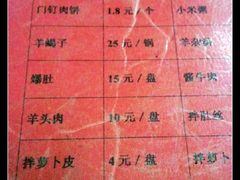 门钉肉饼 1.8元/个 小米粥
羊蝎子 25元/锅 羊杂
爆肚 15元/盘 酱牛肉
羊头肉 10元/盘 拌肚丝
拌萝卜皮 4元/盘 拌萝卜